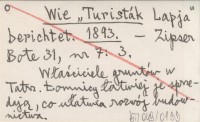 Wie „Turisták Lapja"
berichtet. 1893. — Zipser
Bote 31, nr 7: 3.
Właściciele gruntów w
Tatrz. Łomnicy łatwiej je sprze-
dają, co ułatwia rozwój budow-
nictwa.